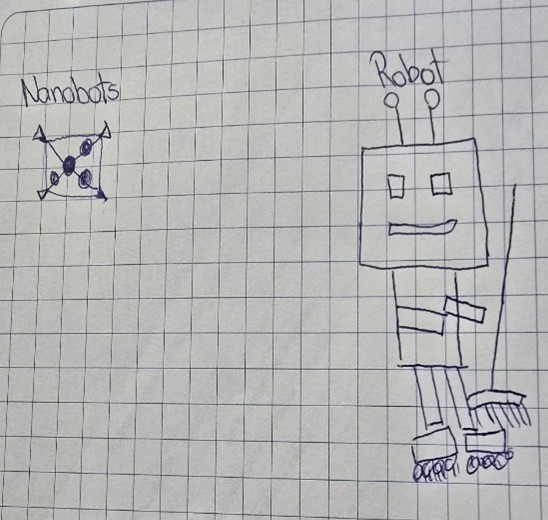 Nanobots
Robot